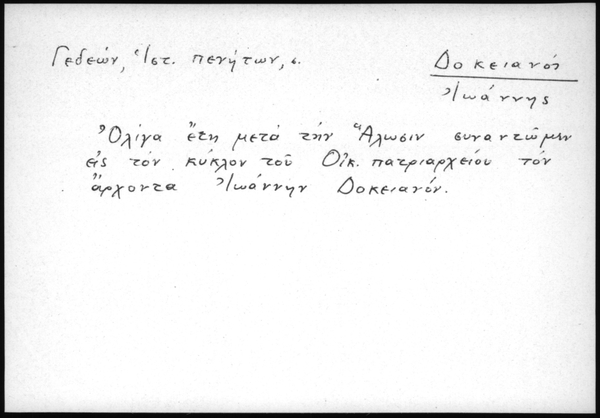 Γεδεών, Ἱστ. πενήτων, σ.
Δοκειανός
Ἰωάννης
Ὀλίγα ἔτη μετά τήν Ἅλωσιν συναντῶμεν
εἰς τόν κύκλον τοῦ Οἰκ. πατριαρχείου τόν
ἄρχοντα Ἰωάννην Δοκειανόν.